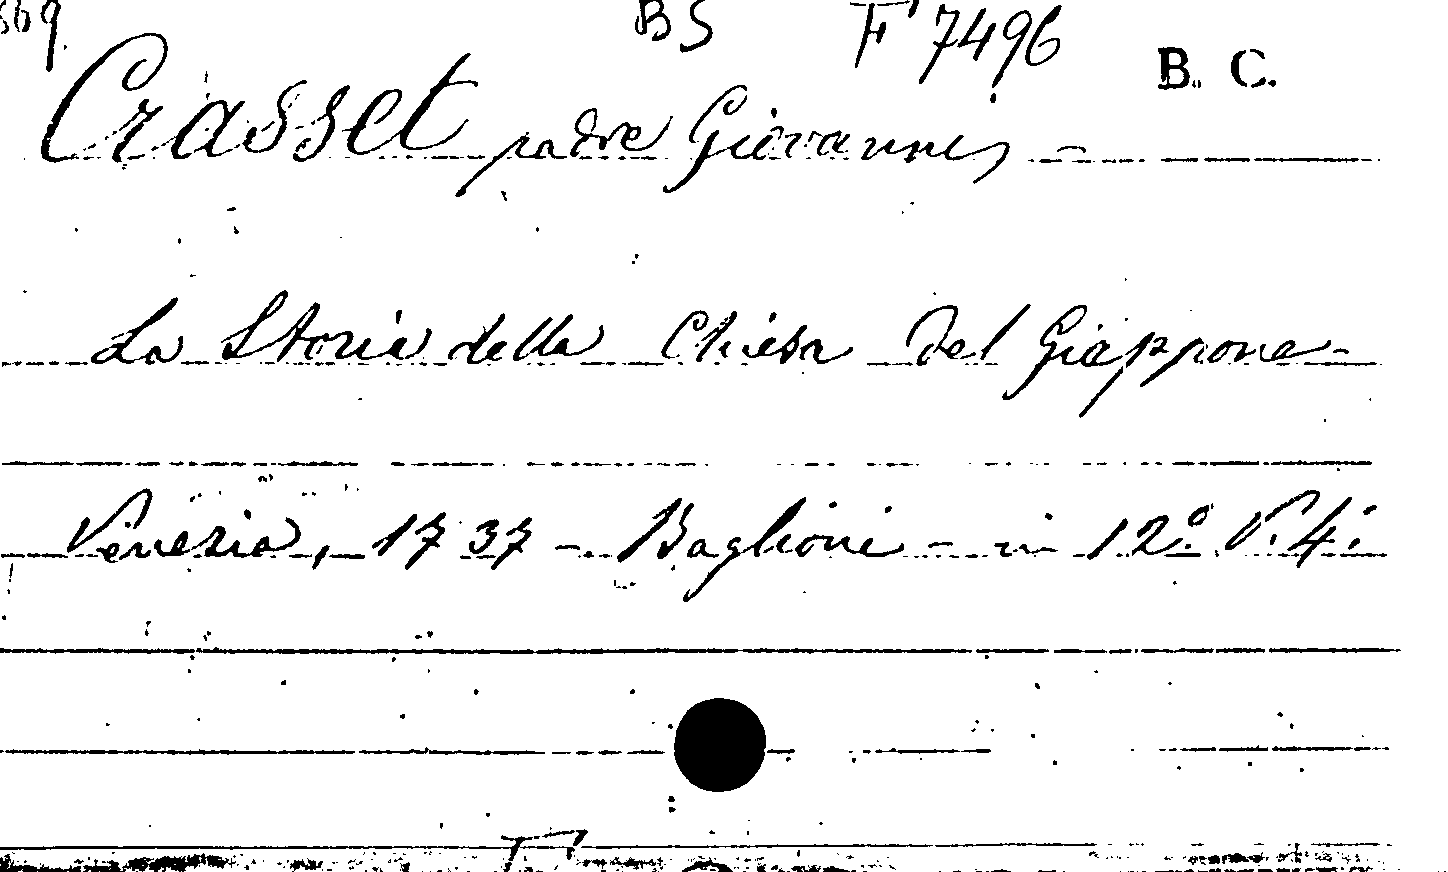 BS F 7496 B. C.
Crasset padre Giovanni -
La Storia della Chiesa del Giappone -
Venezia, 1737 - Baglioni - in 12.° V. 4.